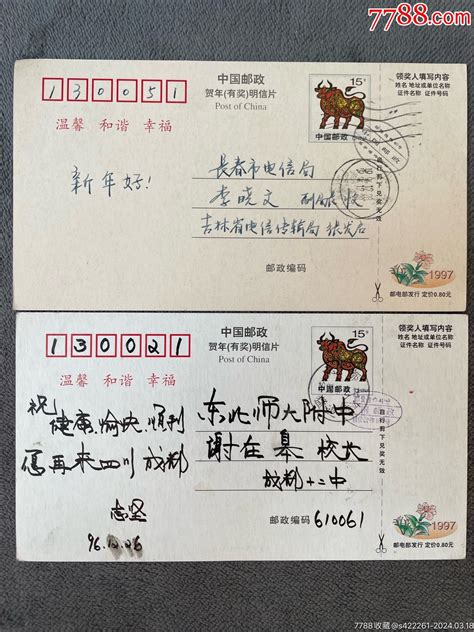 7788.com
中国邮政
贺年(有奖)明信片
Post of China
130051
温馨 和谐 幸福
15分
中国邮政
领奖人填写内容
姓名 地址或单位名称
证件名称 证件号码
新年好!
长春市电信局
李晓文 副局长收
吉林省电信传输局 张发启
自行剪下兑奖无效
邮政编码
1997
邮电部发行 定价0.80元
中国邮政
贺年(有奖)明信片
Post of China
130021
温馨 和谐 幸福
15分
中国邮政
领奖人填写内容
姓名 地址或单位名称
证件名称 证件号码
祝
健康、愉快、顺利
愿再来四川成都
志坚
96.12.26
东北师大附中
谢在 校长
成都十二中
自行剪下兑奖无效
邮政编码 610061
1997
邮电部发行 定价0.80元
7788收藏@s422261-2024.03.18